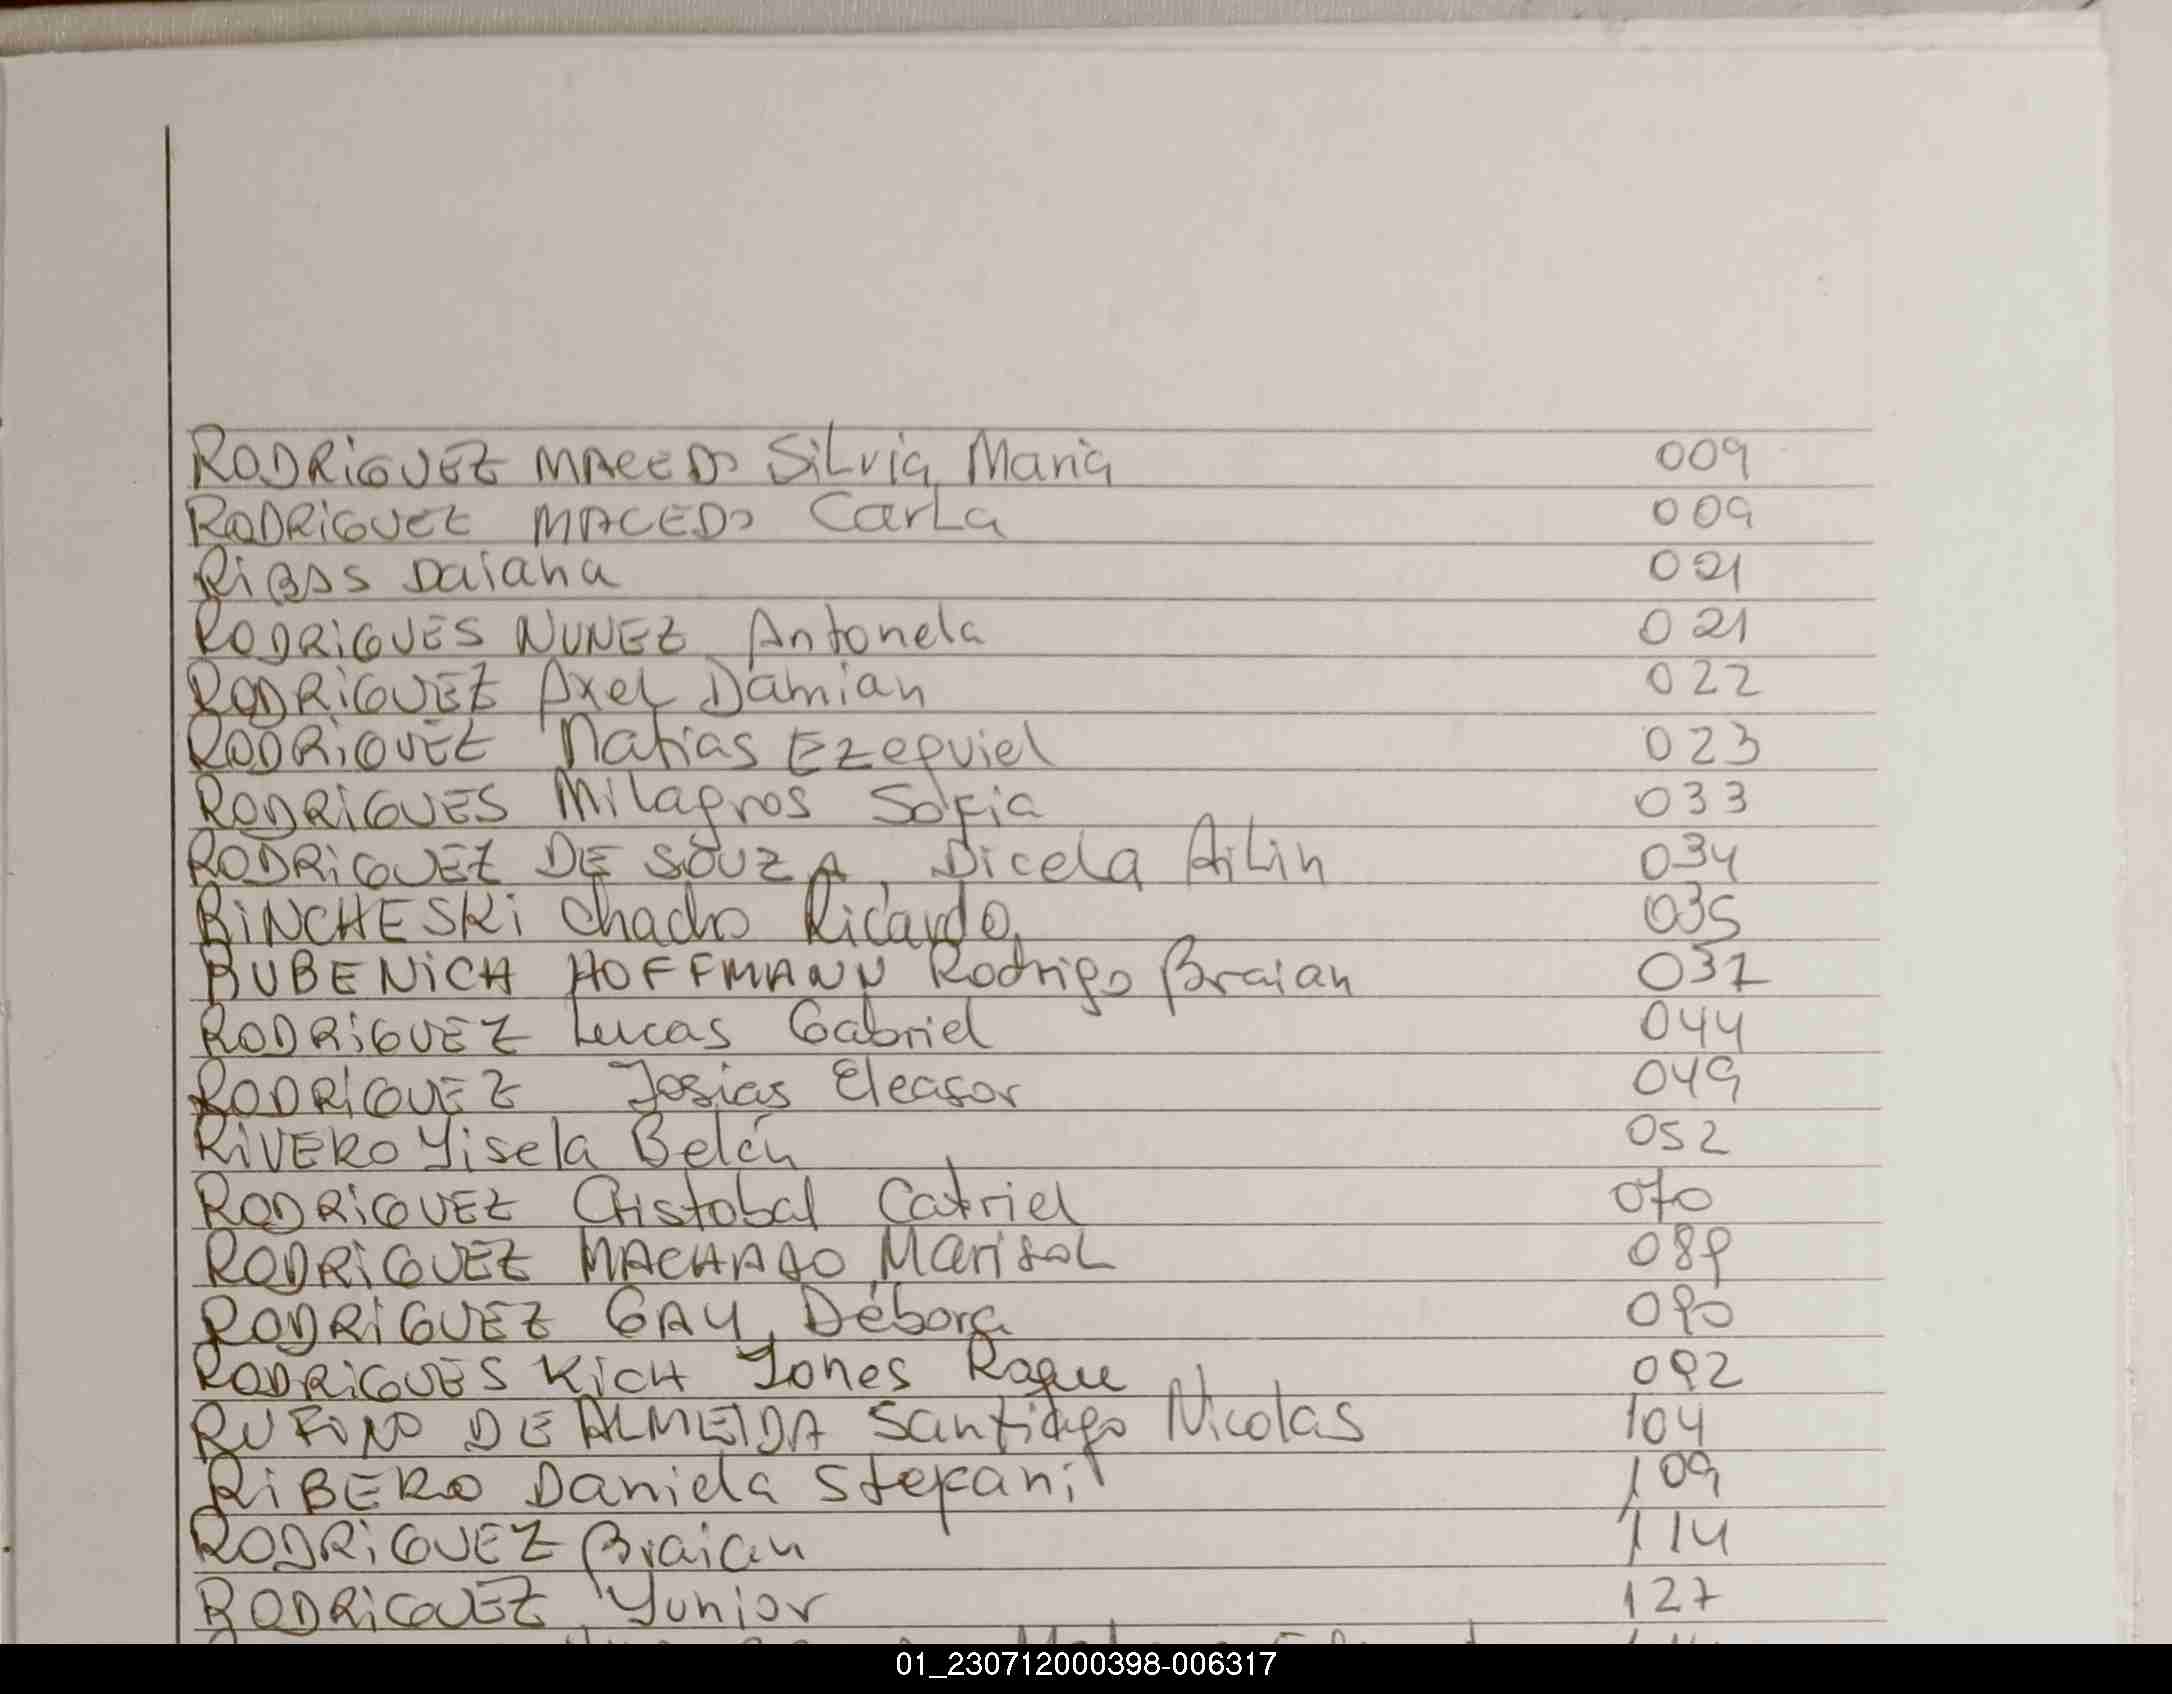 RODRIGUEZ MACEDO Silvia Maria 009
RODRIGUEZ MACEDO Carla 009
RIBAS Daiana 021
RODRIGUES NUNEZ Antonela 021
RODRIGUEZ Axel Damian 022
RODRIGUEZ Matias Ezequiel 023
RODRIGUES Milagros Sofia 033
RODRIGUEZ DE SOUZA, Dicela Ailin 034
RINCHESKI Chacho Ricardo 035
RUBENICH HOFFMANN Rodrigo Braian 037
RODRIGUEZ Lucas Gabriel 044
RODRIGUEZ Josias Eleasar 049
RIVERO Yisela Belén 052
RODRIGUEZ Cristobal Catriel 070
RODRIGUEZ MACHADO Marisol 089
RODRIGUEZ GAY, Débora 090
RODRIGUES KICH Jones Roque 092
RUFINO DE ALMEIDA Santiago Nicolas 104
RIBERO Daniela Stefani 109
RODRIGUEZ Braian 114
RODRIGUEZ, Yunior 127
01_230712000398-006317